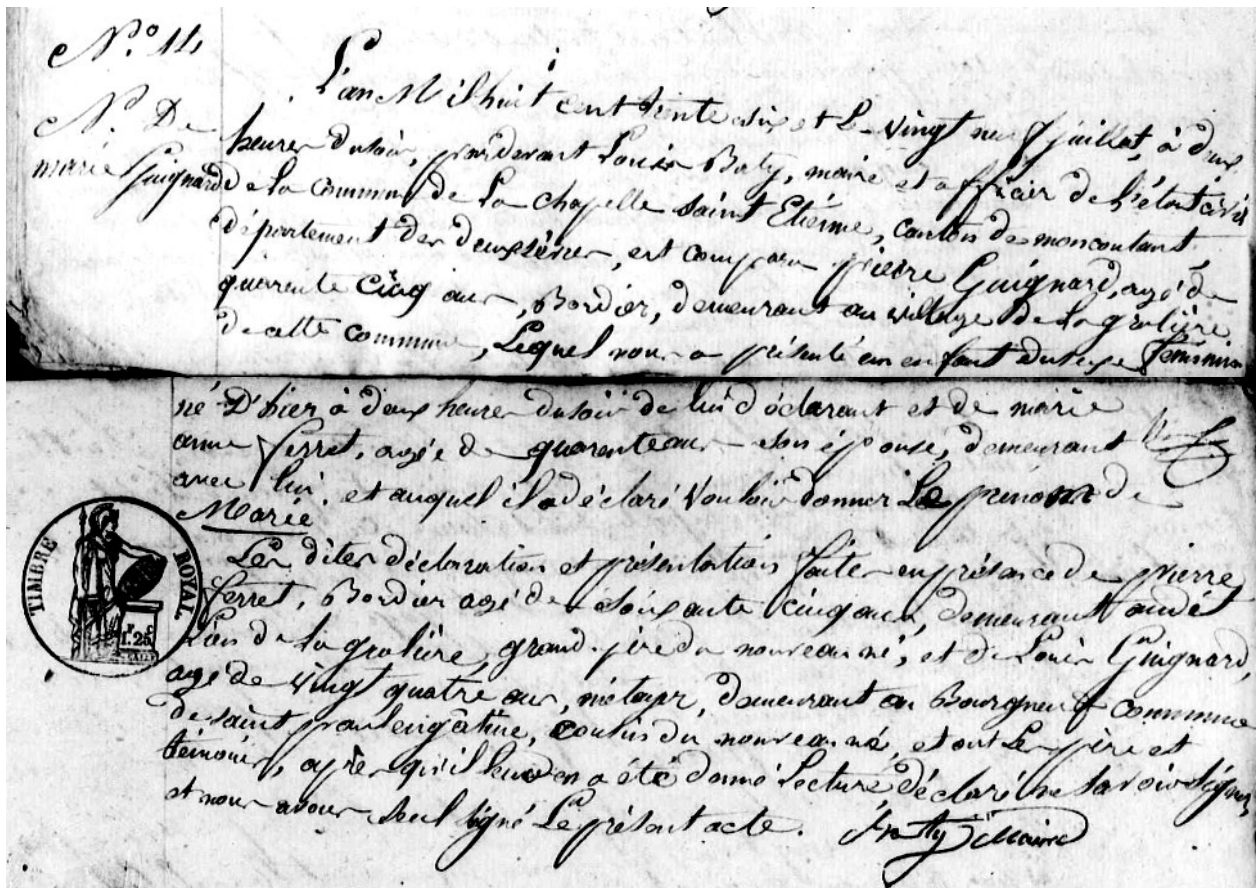 N.º 14
N. De
marie Guignard
L'an Mil huit cent trente six et le vingt neuf juillet, à deux
heures du soir, pardevant Louis Baty, maire et officier de l'état civil
de la commune de la chapelle saint Etienne, canton de moncoutant,
département des deux sèvres, est comparu pierre Guignard, agé de
quarente cinq ans, Bordier, demeurant au village de la grolière
de cette commune, Lequel nous a présenté un enfant du sexe féminin
né D'hier à deux heures du soir de lui déclarant et de marie
anne ferret, agée de quarente ans son épouse, demeurant
avec lui, et auquel il a déclaré vouloir donner Le prénom de
Marie
Les dites déclaration et présentation faites en présance de pierre
ferret, Bordier agé de soixante cinq ans, demeurant audit
Lieu de la grolière, grand-père du nouveau né, et de Louis Guignard,
agé de vingt quatre ans, métayr, demeurant au Bourgneuf commune
de saint paul en gâtine, cousin du nouveau né, et ont Le père et
témoins, après qu'il leur en a été donné Lecture, déclaré ne savoir signer,
et nous avons seul signé Le présent acte. Baty Maire
TIMBRE ROYAL
1.F 25.C